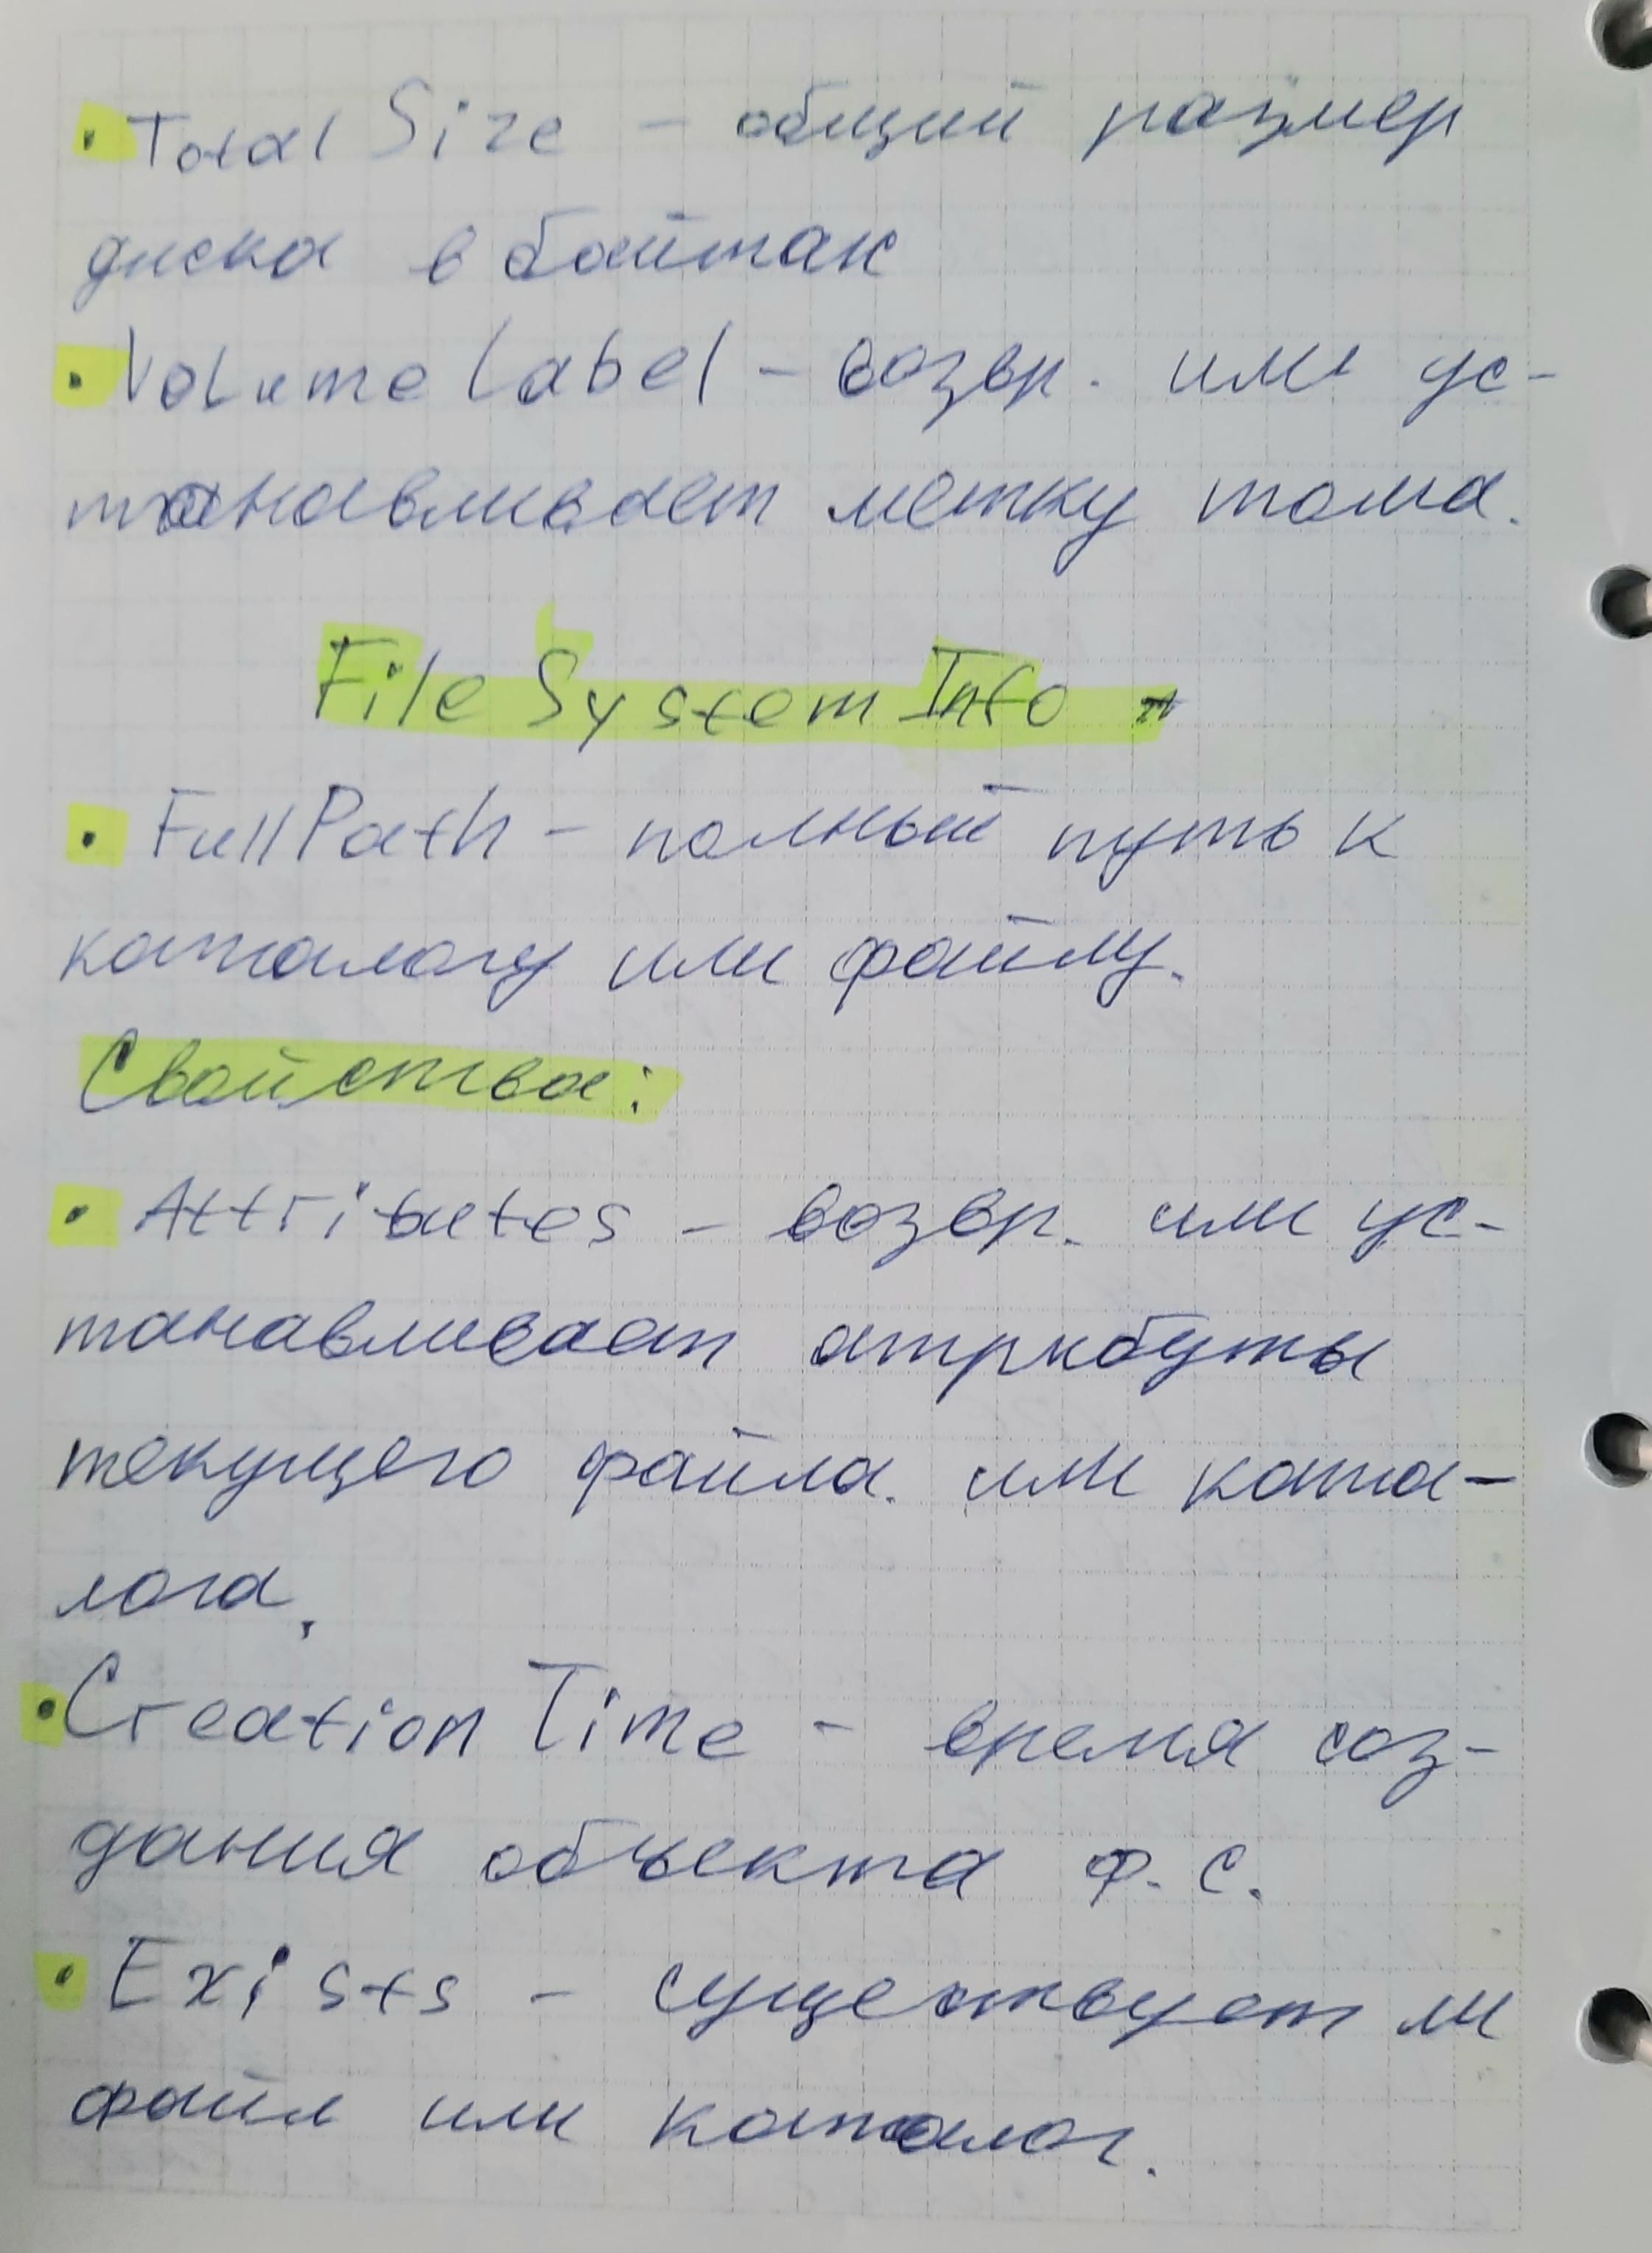 • Total Size – общий размер
диска в байтах
• Volume Label – возвр. или ус-
танавливает метку тома.
File System Info
• FullPath – полный путь к
каталогу или файлу.
Свойства:
• Attributes – возвр. или ус-
танавливает атрибуты
текущего файла. или ката-
лога.
• Creation Time – время соз-
дания объекта ф. с.
• Exists – существует ли
файл или каталог.